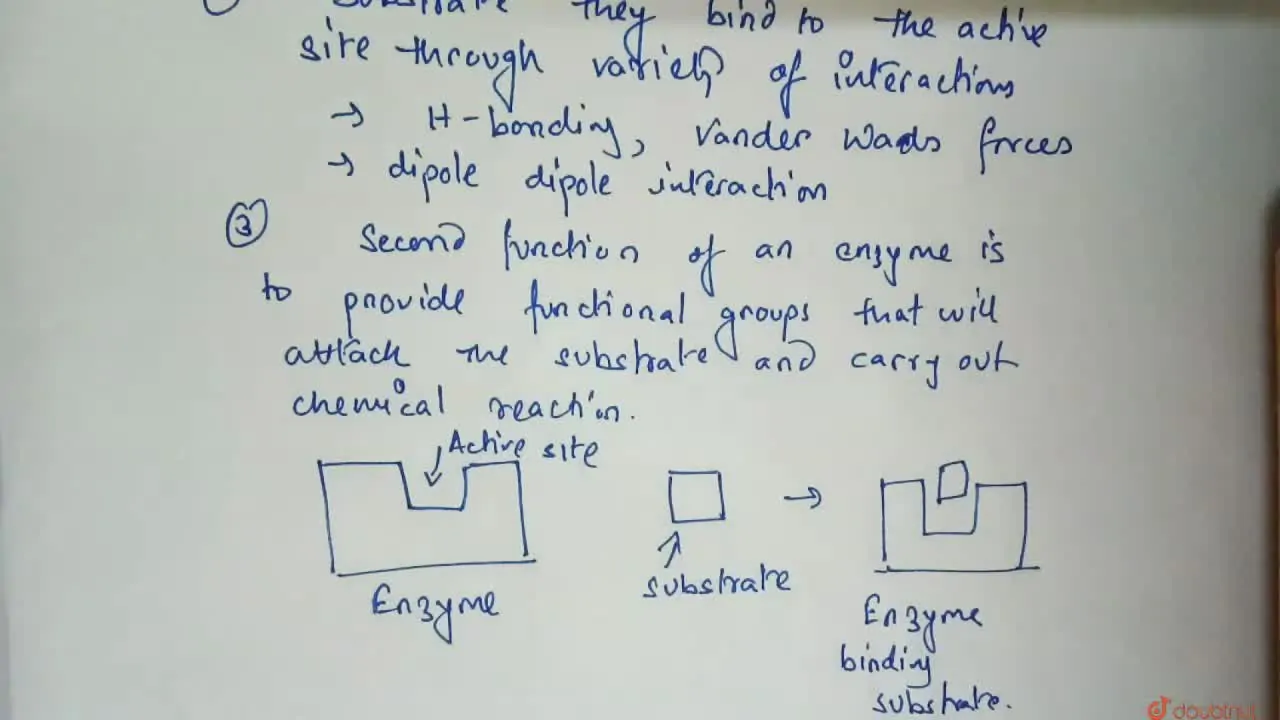 substrate they bind to the active
site through variety of interactions
→ H-bonding, Vander Waals forces
→ dipole dipole interaction
③ Second function of an enzyme is
to provide functional groups that will
attack the substrate and carry out
chemical reaction.
Active site
Enzyme
substrate
→
Enzyme
binding
substrate.
doubtnut